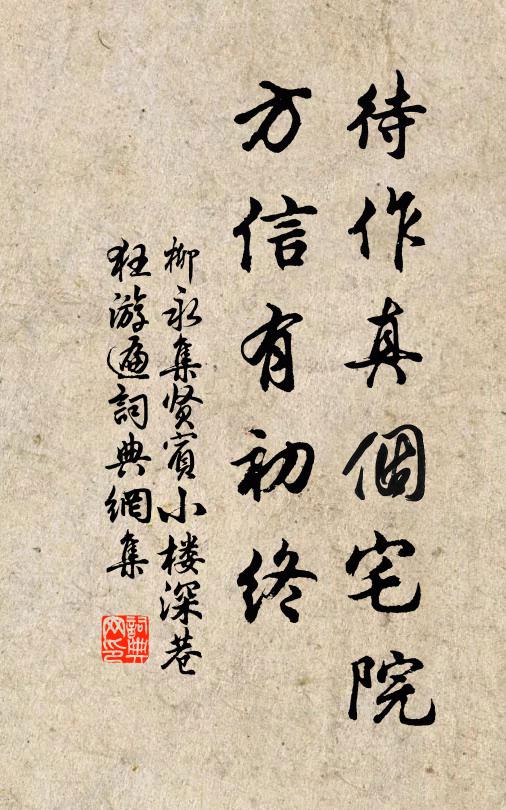 待作真個宅院
方信有初終
柳永集贤賓小楼深巷
狂游遍詞典網集
詞典
网印